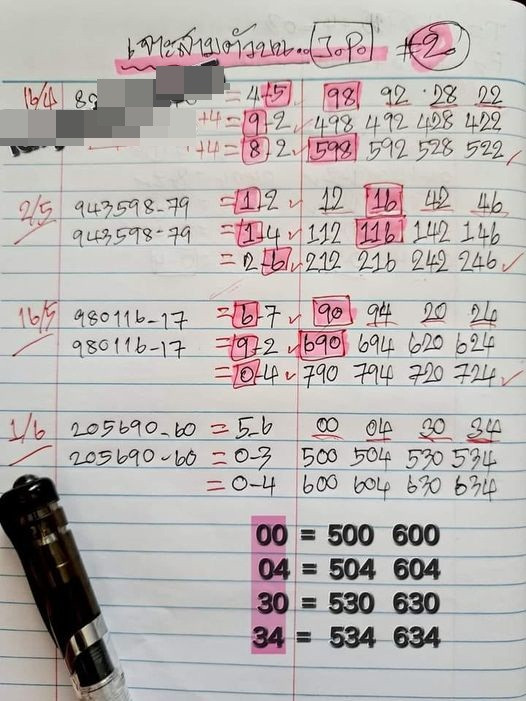 เจาะสามตัวบน.. J.P. #2.
16/4 89 = 4-5 98 92 28 22
+4 = 9-2 498 492 428 422
+4 = 8-2 598 592 528 522
2/5 943598-79 = 1-2 12 16 42 46
943598-79 = 1-4 112 116 142 146
= 2-6 212 216 242 246
16/5 980116-17 = 6-7 90 94 20 24
980116-17 = 9-2 690 694 620 624
= 0-4 790 794 720 724
1/6 205690-60 = 5-6 00 04 30 34
205690-60 = 0-3 500 504 530 534
= 0-4 600 604 630 634
00 = 500 600
04 = 504 604
30 = 530 630
34 = 534 634